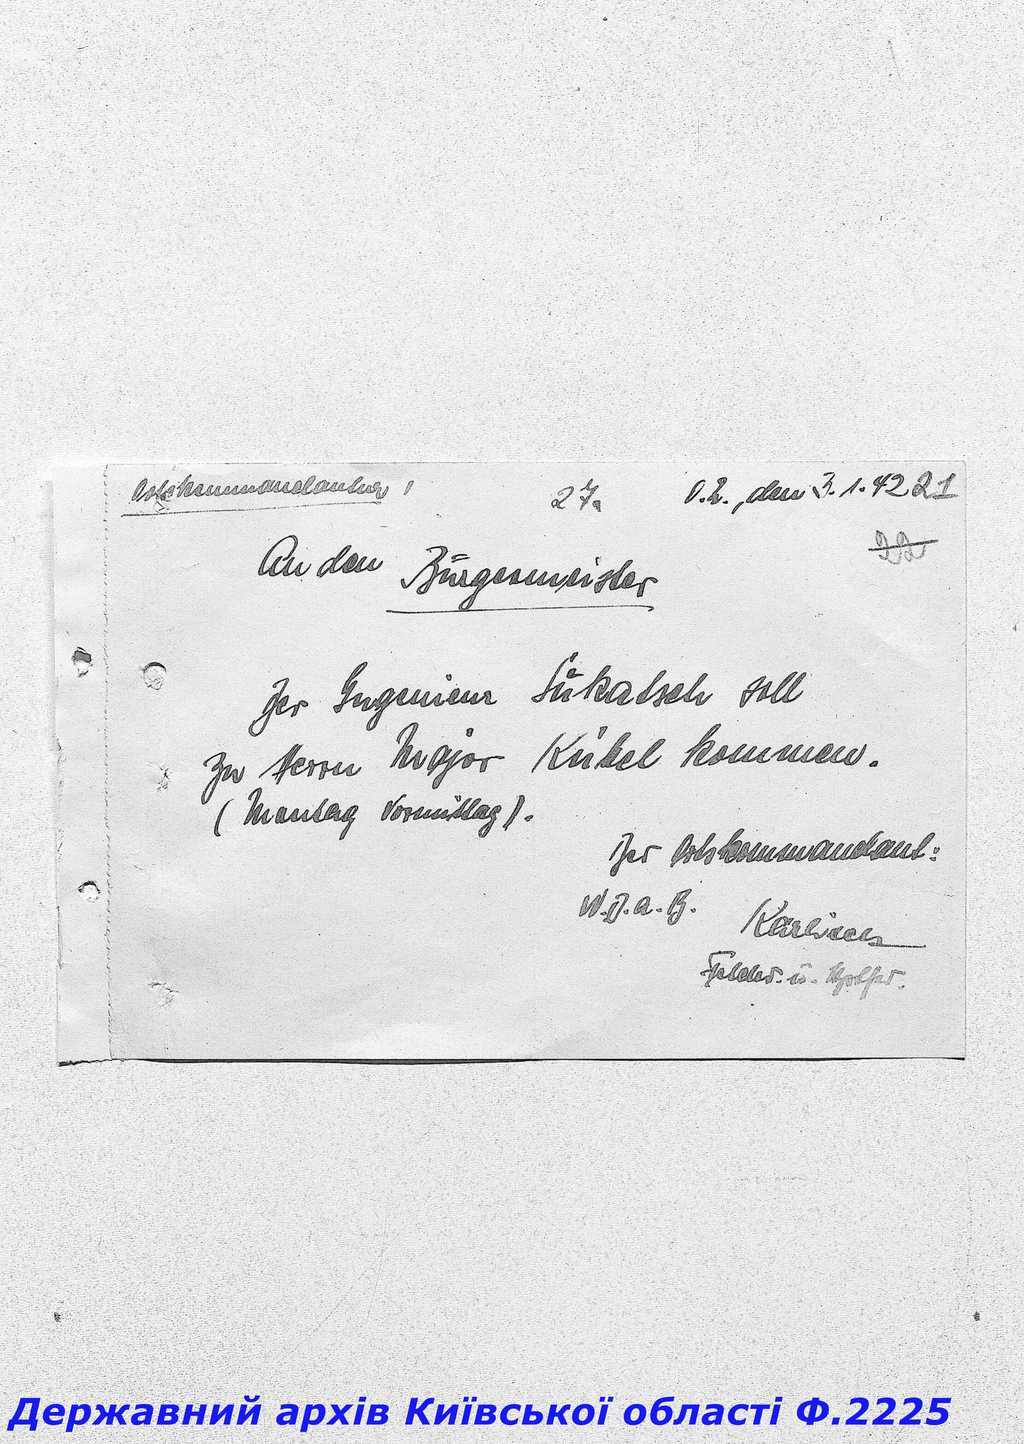 Ortskommandantur
27a
O.U., den 3.1.42 21
22
An den Bürgermeister
Der Ingenieur Lukatsch soll
zu Herrn Major Kübel kommen.
(Montag Vormittag).
Der Ortskommandant:
W.J.a.B.
Feldw. u.
Державний архів Київської області Ф.2225